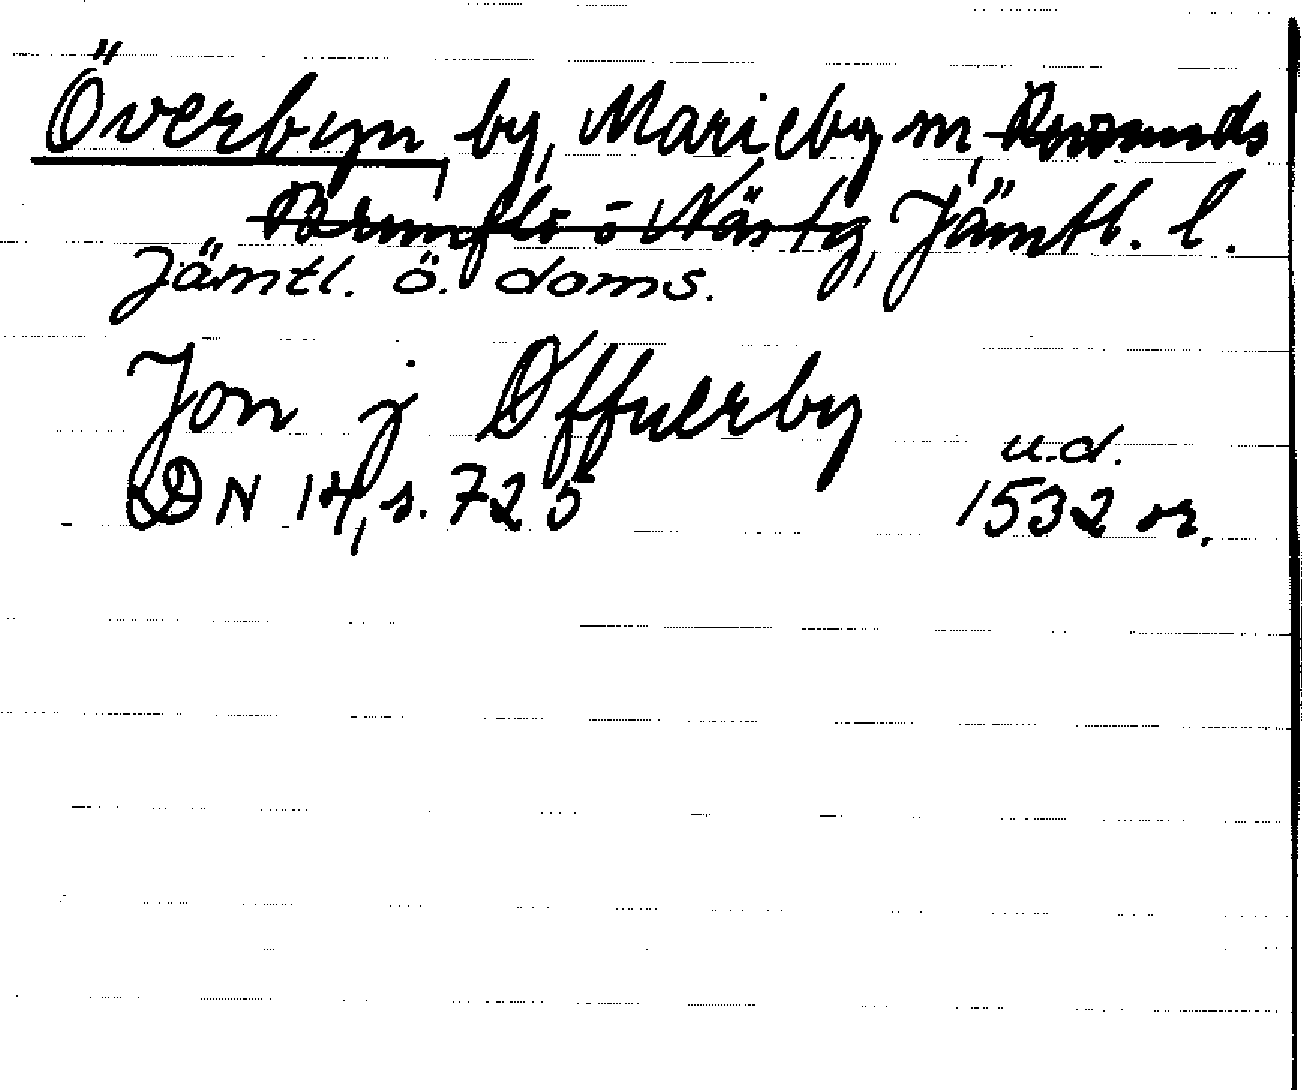 Överbyn, by, Marieby sn,
Brunflo o Näs tg, Jämtl. l.
Jämtl. ö. doms.
Jon j Øffuerby
u.d.
DN 14, s. 725 1532 or.